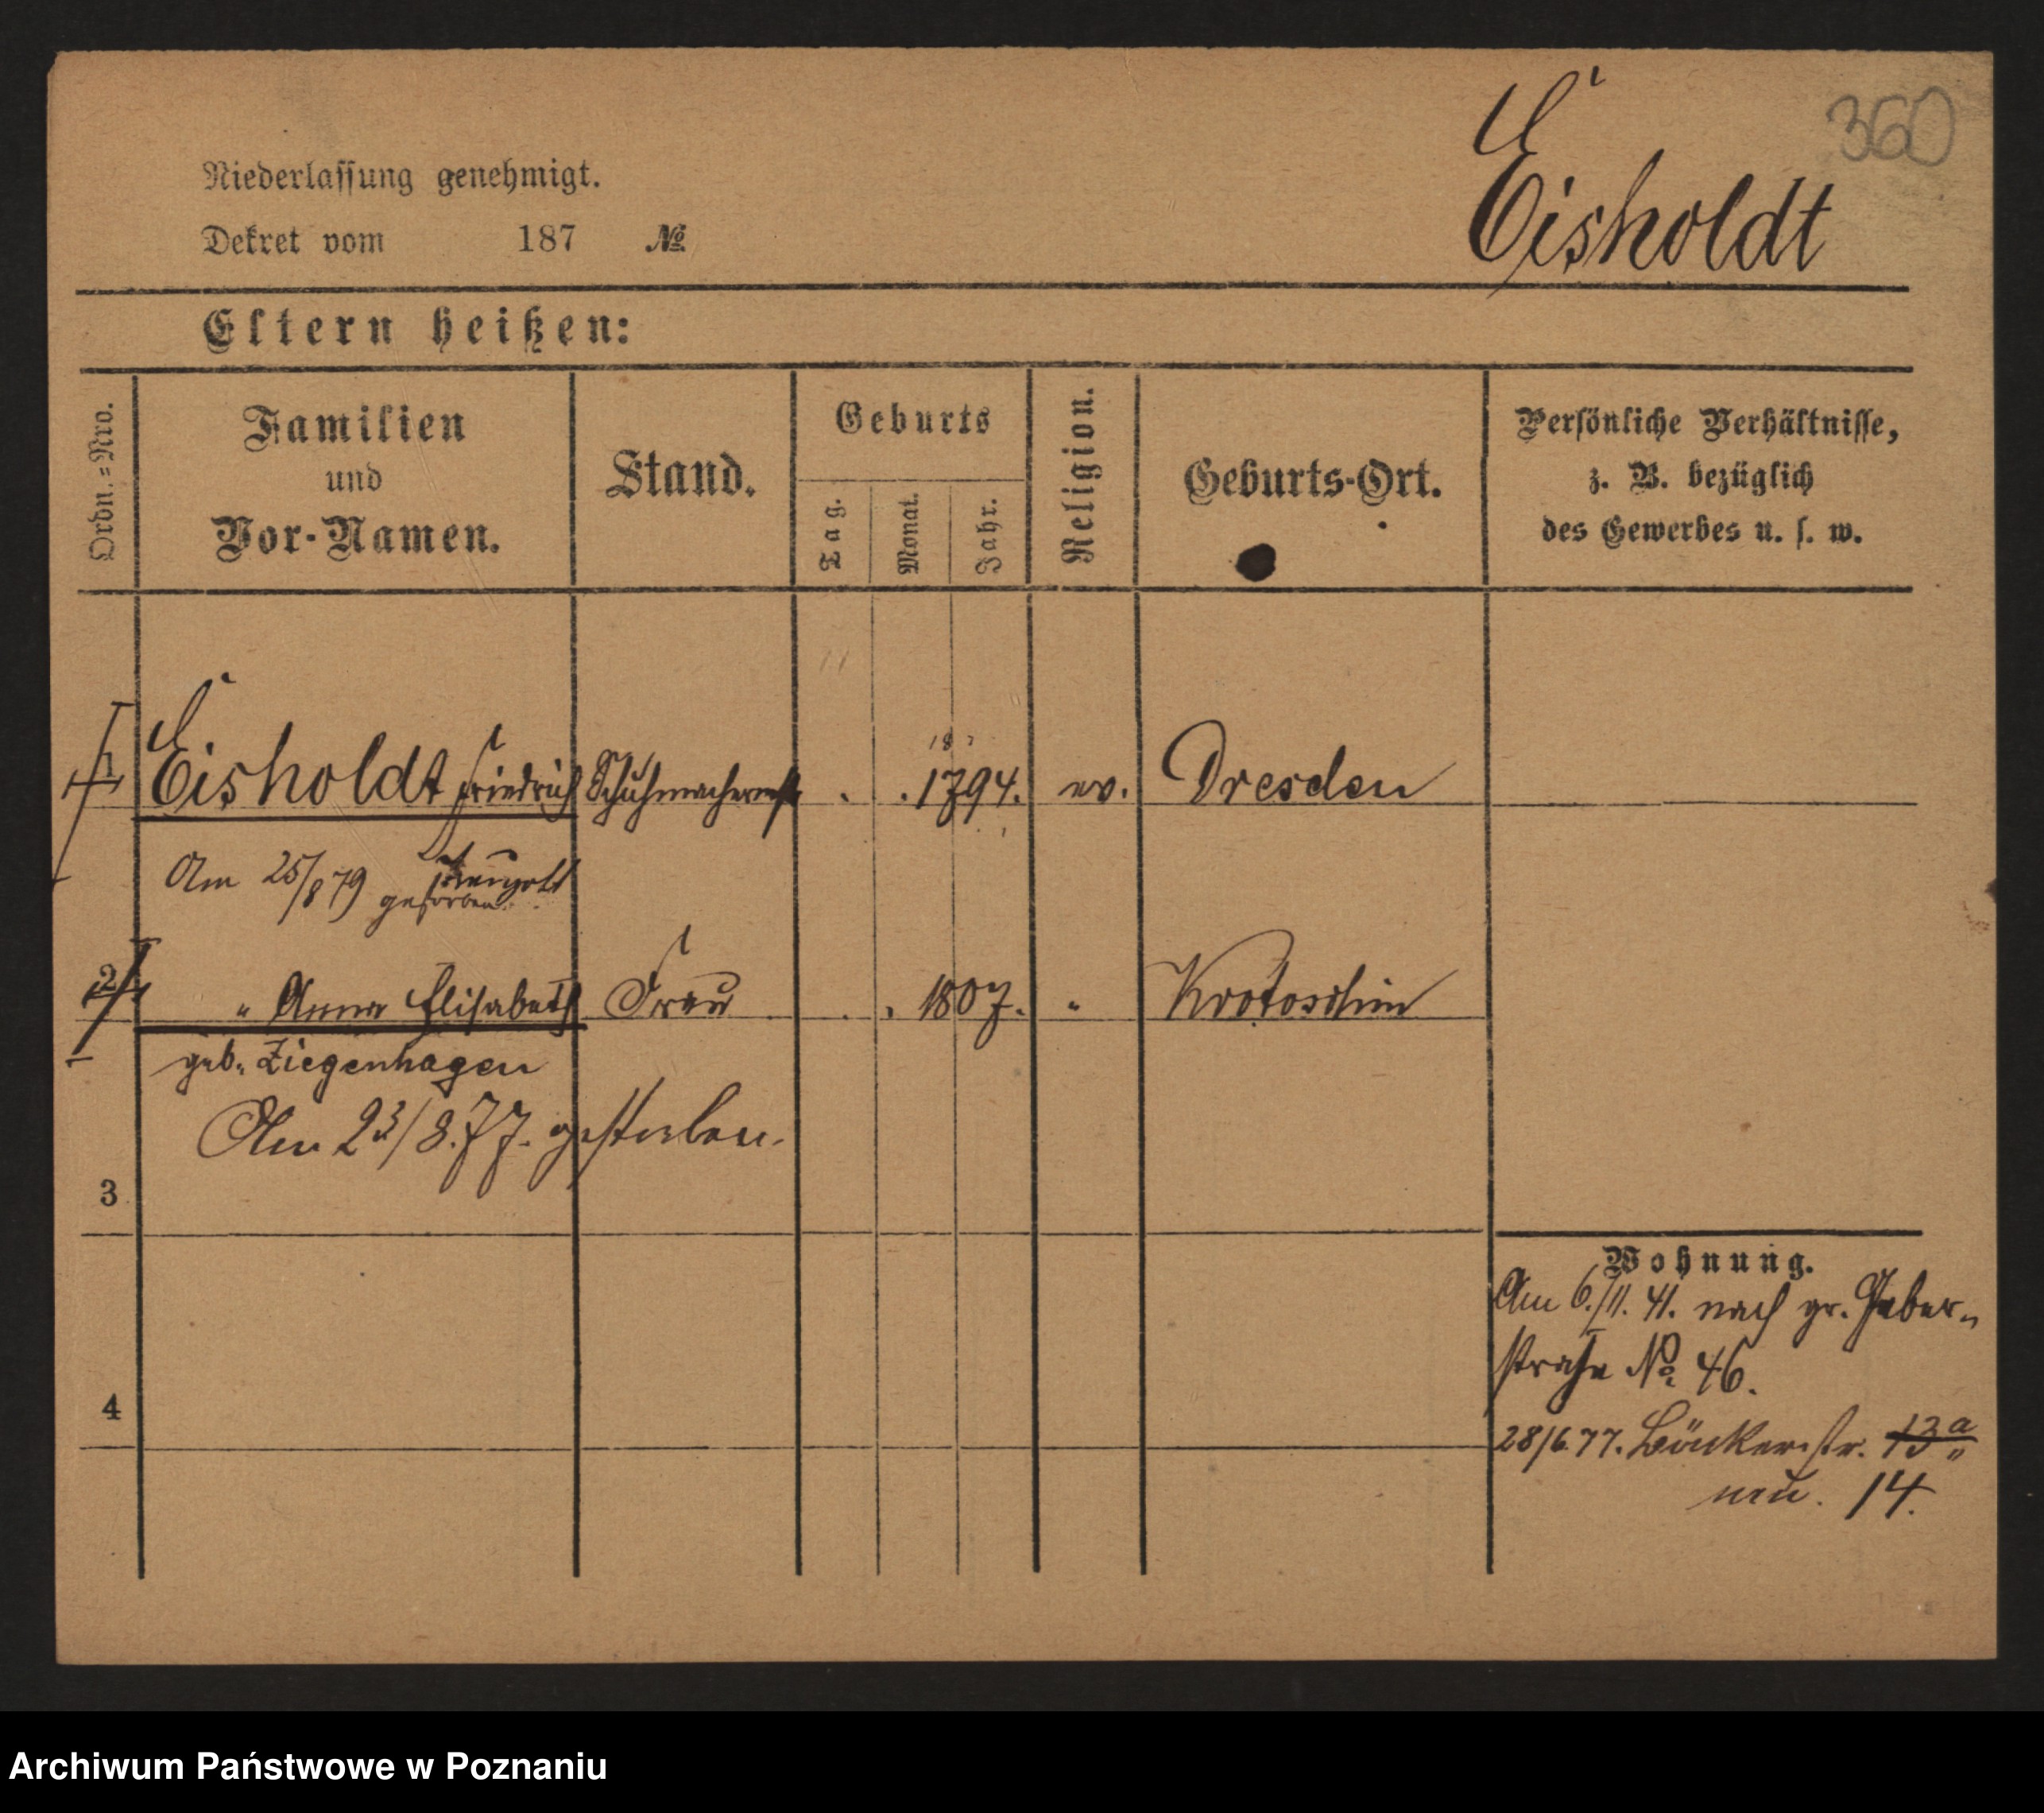 360
Eisholdt
Niederlassung genehmigt.
Dekret vom 187 №
Eltern heißen:
Ordn.=Nro.
Familien
und
Vor-Namen.
Stand.
Geburts
Tag.
Monat.
Jahr.
Religion.
Geburts-Ort.
Persönliche Verhältnisse,
z. B. bezüglich
des Gewerbes u. s. w.
1 Eisholdt Friedrich Schuhmachermstr . . 1794. ev. Dresden
Traugott
Am 25/8 79 gestorben.
2 " Anna Elisabeth Frau . . 1807. " Krotoschin
geb. Ziegenhagen
Am 23/8.77. gestorben.
3
Wohnung.
Am 6./11. 41. nach gr. Gerber-
straße № 46.
4
28/6 77. Bäckerstr. 13a
neu. 14.
Archiwum Państwowe w Poznaniu